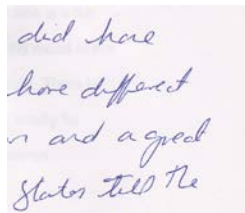 did have
have different
and agreed
States till the